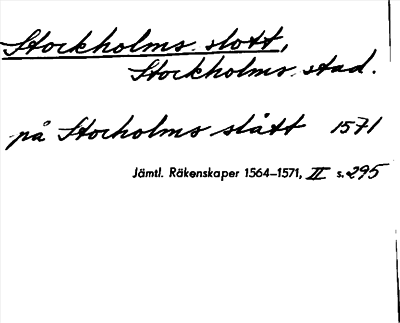 Stockholms slott,
Stockholms stad.
på Stocholms slått 1571
Jämtl. Räkenskaper 1564–1571, II s. 295